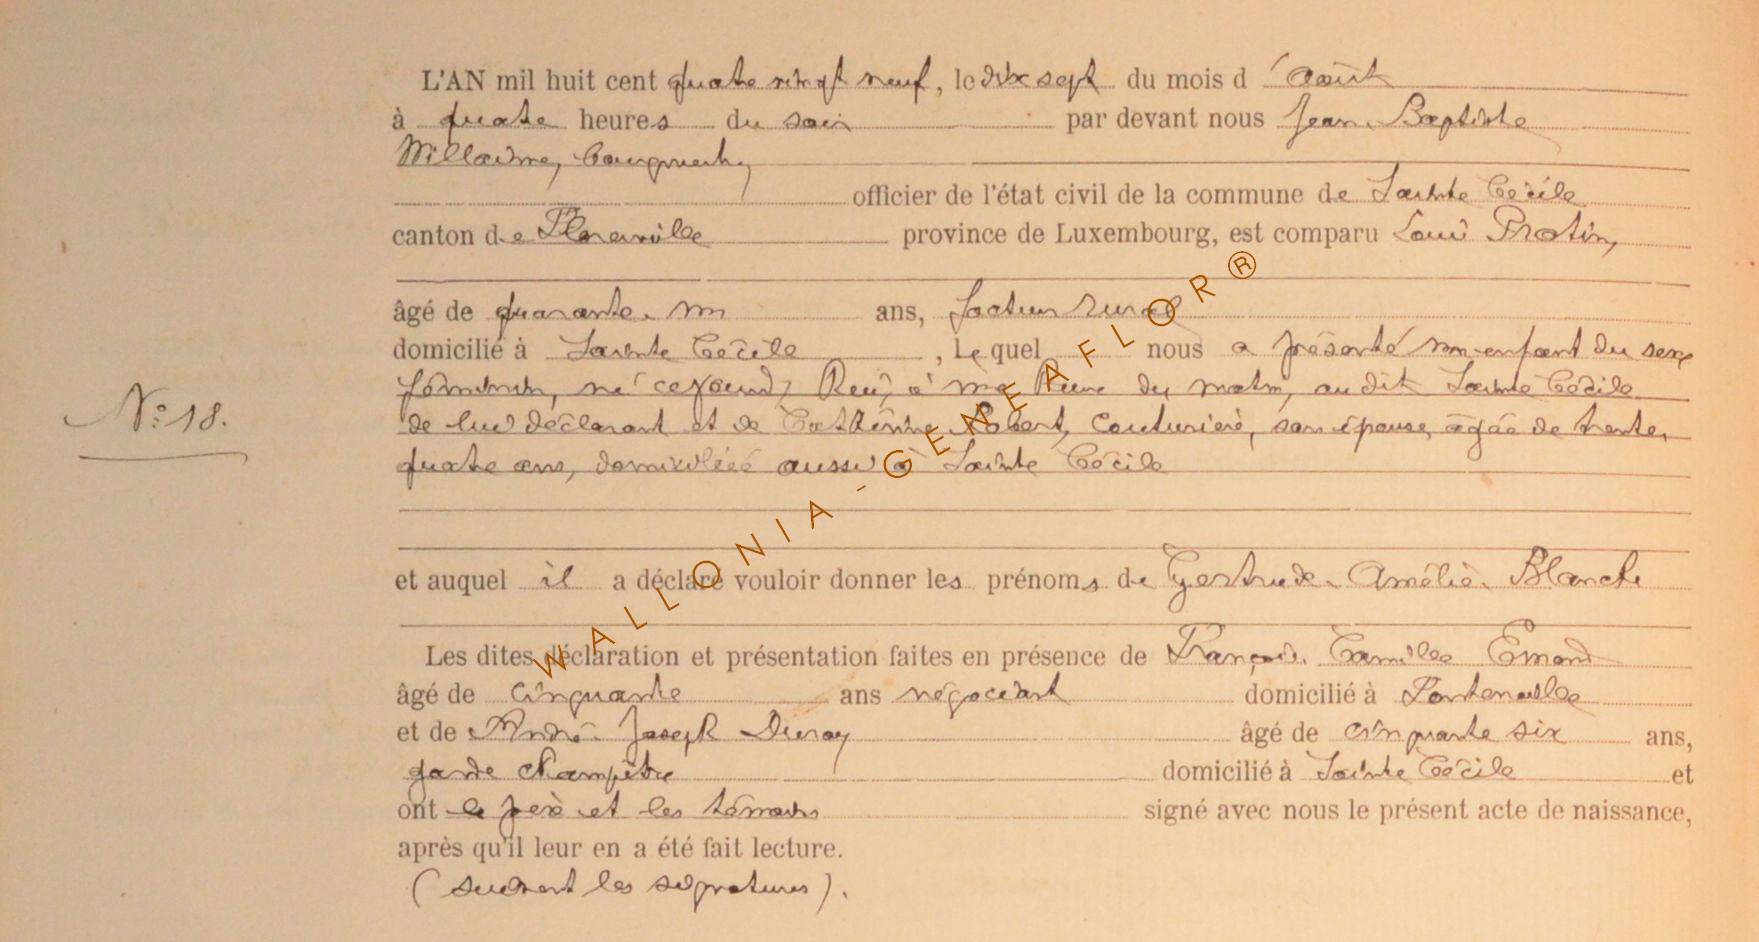 L'AN mil huit cent quatre vingt neuf, le dix sept du mois d'août
à quatre heures du soir par devant nous Jean-Baptiste
Willaime, bourgmestre,
officier de l'état civil de la commune de Sainte Cécile
canton de Florenville province de Luxembourg, est comparu Louis Protin,
âgé de quarante-un ans, facteur rural
domicilié à Sainte Cécile, Lequel nous a présenté un enfant du sexe
N° 18.
féminin, né ce jourd'hui, à une heure du matin, au dit Sainte Cécile
de lui déclarant et de Catherine Robert, couturière, son épouse, âgée de trente-
quatre ans, domiciliée aussi à Sainte Cécile
et auquel il a déclaré vouloir donner les prénoms de Gertrude-Amélie-Blanche
Les dites déclaration et présentation faites en présence de François-Camille Emond
âgé de cinquante ans négociant domicilié à Fontenoille
et de André-Joseph Duroy âgé de cinquante six ans,
garde champêtre domicilié à Sainte Cécile et
ont le père et les témoins signé avec nous le présent acte de naissance,
après qu'il leur en a été fait lecture.
(suivent les signatures).
WALLONIA-GENEAFLOR®